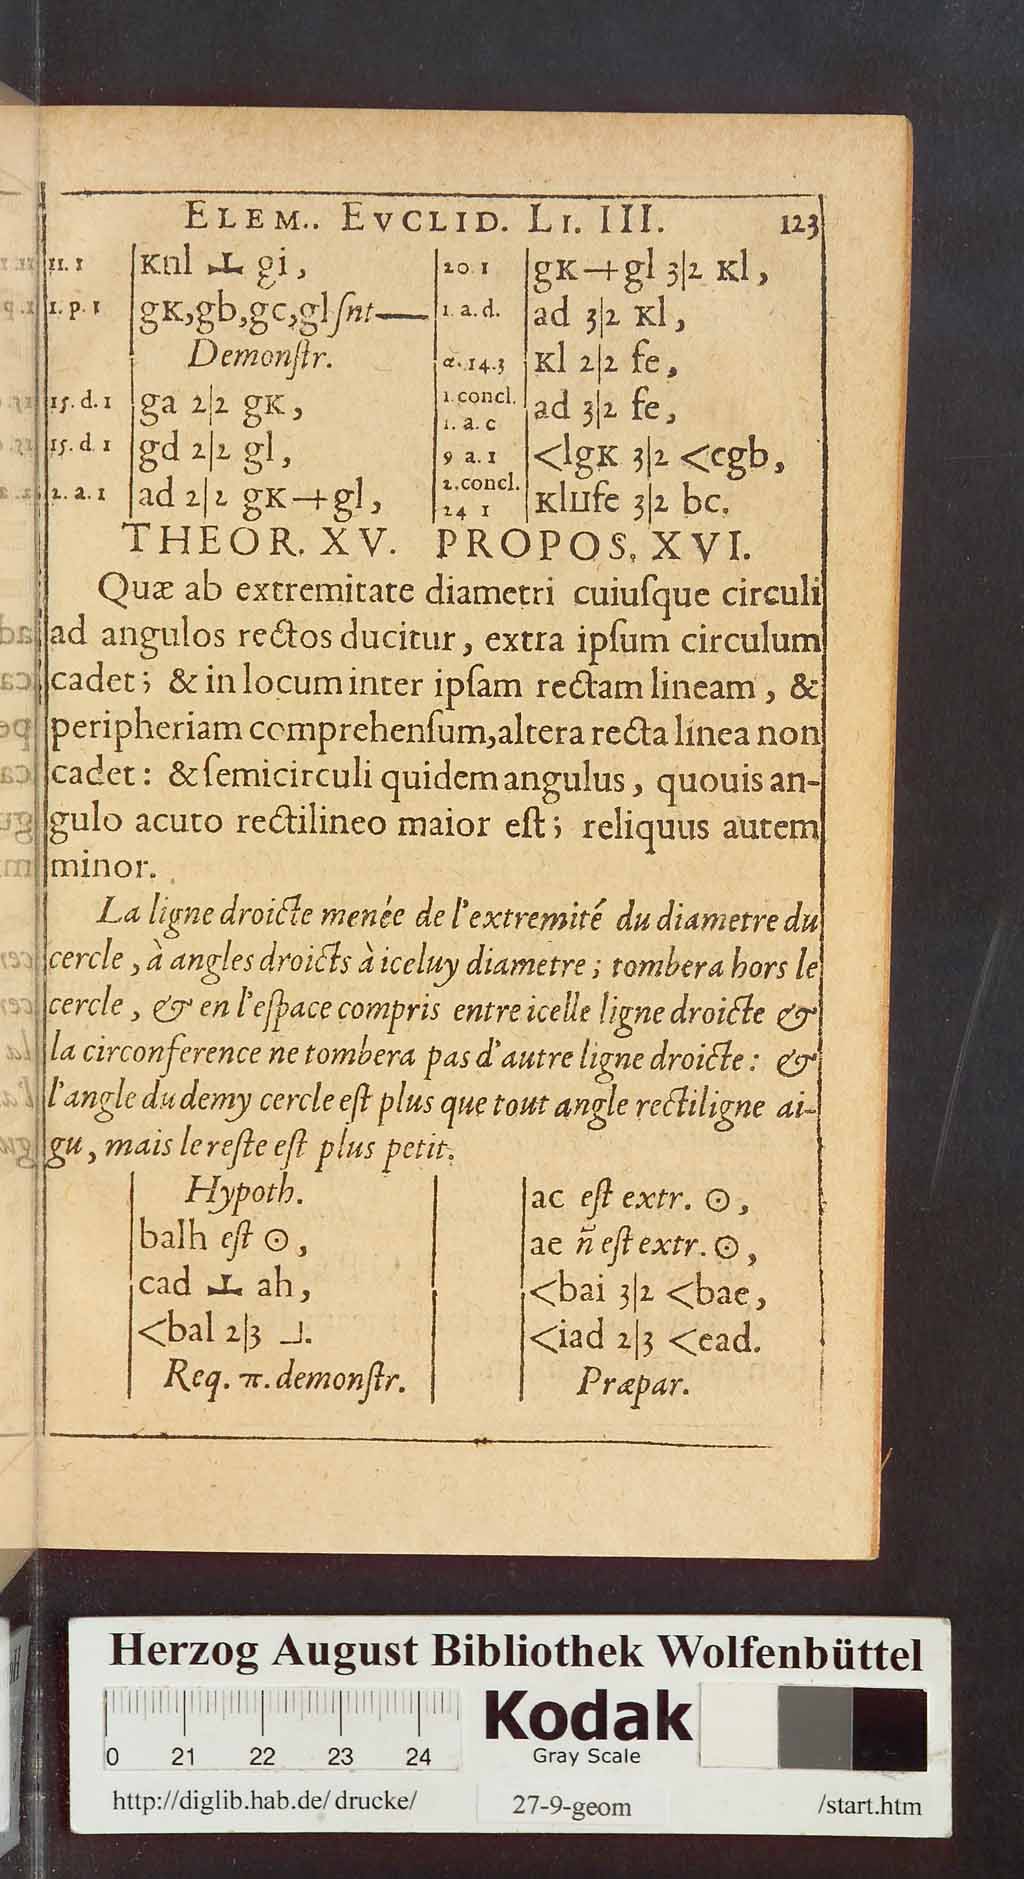 ELEM.. EVCLID. LI. III. 123
11. 1 Knl ⊥ gi,
1. p. 1 gK,gb,gc,gl ſnt—
Demonſtr.
15. d. 1 ga 2|2 gK,
15. d. 1 gd 2|2 gl,
2. a. 1 ad 2|2 gK+gl,
20. 1 gK+gl 3|2 Kl,
1. a. d. ad 3|2 Kl,
α. 14.3 Kl 2|2 fe,
1.concl.
1. a. c ad 3|2 fe,
9 a. 1 <lgK 3|2 <cgb,
2.concl.
24 1 KlIIfe 3|2 bc.
THEOR. XV. PROPOS. XVI.
Quæ ab extremitate diametri cuiuſque circuli
ad angulos rectos ducitur, extra ipſum circulum
cadet; & in locum inter ipſam rectam lineam, &
peripheriam comprehenſum, altera recta linea non
cadet: & ſemicirculi quidem angulus, quouis an-
gulo acuto rectilineo maior eſt; reliquus autem
minor.
La ligne droicte menée de l'extremité du diametre du
cercle, à angles droicts à iceluy diametre; tombera hors le
cercle, & en l'eſpace compris entre icelle ligne droicte &
la circonference ne tombera pas d'autre ligne droicte: &
l'angle du demy cercle eſt plus que tout angle rectiligne ai-
gu, mais le reſte eſt plus petit.
Hypoth.
balh eſt ⊙,
cad ⊥ ah,
<bal 2|3 ⅃.
Req. π. demonſtr.
ac eſt extr. ⊙,
ae ñ eſt extr. ⊙,
<bai 3|2 <bae,
<iad 2|3 <ead.
Præpar.
Herzog August Bibliothek Wolfenbüttel
0 21 22 23 24
Kodak
Gray Scale
http://diglib.hab.de/drucke/ 27-9-geom /start.htm